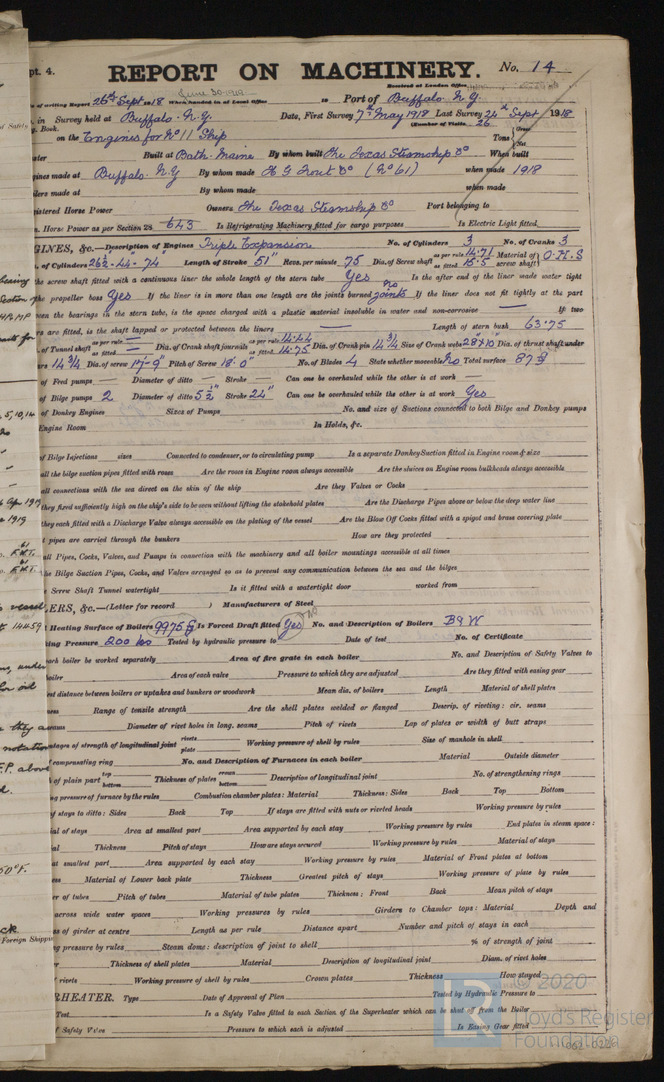 pt. 4.
REPORT ON MACHINERY. No. 14
Received at London Office
of writing Report 26th Sept 1918 When handed in at Local Office June 30-1919 Port of Buffalo. N.Y.
in Survey held at Buffalo. N.Y. Date, First Survey 7th May 1918 Last Survey 24th Sept 1918
Book. (Number of Visits 26
on the Engines for No 11 Ship Tons { Gross Net
ster Built at Bath. Maine By whom built The Texas Steamship Co When built
gines made at Buffalo. N.Y By whom made H G Trout Co (No 61) when made 1918
ilers made at By whom made when made
gistered Horse Power Owners The Texas Steamship Co Port belonging to
n. Horse Power as per Section 28 643 Is Refrigerating Machinery fitted for cargo purposes Is Electric Light fitted
GINES, &c.—Description of Engines Triple Expansion No. of Cylinders 3 No. of Cranks 3
. of Cylinders 26½-44-74" Length of Stroke 51" Revs. per minute 75 Dia. of Screw shaft as per rule 14.71 as fitted 15.5 Material of screw shaft O.H.S
the screw shaft fitted with a continuous liner the whole length of the stern tube Yes Is the after end of the liner made water tight
the propeller boss Yes If the liner is in more than one length are the joints burned no joints If the liner does not fit tightly at the part
een the bearings in the stern tube, is the space charged with a plastic material insoluble in water and non-corrosive — If two
rs are fitted, is the shaft lapped or protected between the liners — Length of stern bush 63.75
. of Tunnel shaft as per rule — as fitted — Dia. of Crank shaft journals as per rule 14.44 as fitted 14.75 Dia. of Crank pin 14¾ Size of Crank webs 28"x10" Dia. of thrust shaft under
rs 14¾ Dia. of screw 17'-9" Pitch of Screw 18'-0" No. of Blades 4 State whether moveable No Total surface 87
of Feed pumps — Diameter of ditto — Stroke — Can one be overhauled while the other is at work —
of Bilge pumps 2 Diameter of ditto 5½" Stroke 24" Can one be overhauled while the other is at work Yes
of Donkey Engines Sizes of Pumps No. and size of Suctions connected to both Bilge and Donkey pumps
Engine Room In Holds, &c.
of Bilge Injections sizes Connected to condenser, or to circulating pump Is a separate Donkey Suction fitted in Engine room & size
all the bilge suction pipes fitted with roses Are the roses in Engine room always accessible Are the sluices on Engine room bulkheads always accessible
all connections with the sea direct on the skin of the ship Are they Valves or Cocks
they fixed sufficiently high on the ship's side to be seen without lifting the stokehold plates Are the Discharge Pipes above or below the deep water line
they each fitted with a Discharge Valve always accessible on the plating of the vessel Are the Blow Off Cocks fitted with a spigot and brass covering plate
t pipes are carried through the bunkers How are they protected
all Pipes, Cocks, Valves, and Pumps in connection with the machinery and all boiler mountings accessible at all times
the Bilge Suction Pipes, Cocks, and Valves arranged so as to prevent any communication between the sea and the bilges
Screw Shaft Tunnel watertight Is it fitted with a watertight door worked from
LERS, &c.—(Letter for record ) Manufacturers of Steel
l Heating Surface of Boilers 9975 Is Forced Draft fitted Yes No. and Description of Boilers B & W
king Pressure 200 lbs Tested by hydraulic pressure to Date of test No. of Certificate
each boiler be worked separately Area of fire grate in each boiler No. and Description of Safety Valves to
boiler Area of each valve Pressure to which they are adjusted Are they fitted with easing gear
est distance between boilers or uptakes and bunkers or woodwork Mean dia. of boilers Length Material of shell plates
ness Range of tensile strength Are the shell plates welded or flanged Descrip. of riveting: cir. seams
seams Diameter of rivet holes in long. seams Pitch of rivets Lap of plates or width of butt straps
ntages of strength of longitudinal joint rivets plate Working pressure of shell by rules Size of manhole in shell
f compensating ring No. and Description of Furnaces in each boiler Material Outside diameter
of plain part top bottom Thickness of plates crown bottom Description of longitudinal joint No. of strengthening rings
ng pressure of furnace by the rules Combustion chamber plates: Material Thickness: Sides Back Top Bottom
of stays to ditto: Sides Back Top If stays are fitted with nuts or riveted heads Working pressure by rules
ial of stays Area at smallest part Area supported by each stay Working pressure by rules End plates in steam space:
ial Thickness Pitch of stays How are stays secured Working pressure by rules Material of stays
at smallest part Area supported by each stay Working pressure by rules Material of Front plates at bottom
ness Material of Lower back plate Thickness Greatest pitch of stays Working pressure of plate by rules
er of tubes Pitch of tubes Material of tube plates Thickness: Front Back Mean pitch of stays
across wide water spaces Working pressures by rules Girders to Chamber tops: Material Depth and
ss of girder at centre Length as per rule Distance apart Number and pitch of stays in each
ng pressure by rules Steam dome: description of joint to shell % of strength of joint
Thickness of shell plates Material Description of longitudinal joint Diam. of rivet holes
f rivets Working pressure of shell by rules Crown plates Thickness How stayed
RHEATER. Type Date of Approval of Plan Tested by Hydraulic Pressure to
Test Is a Safety Valve fitted to each Section of the Superheater which can be shut off from the Boiler
f Safety Valve Pressure to which each is adjusted Is Easing Gear fitted
© 2020
Lloyd's Register
Foundation